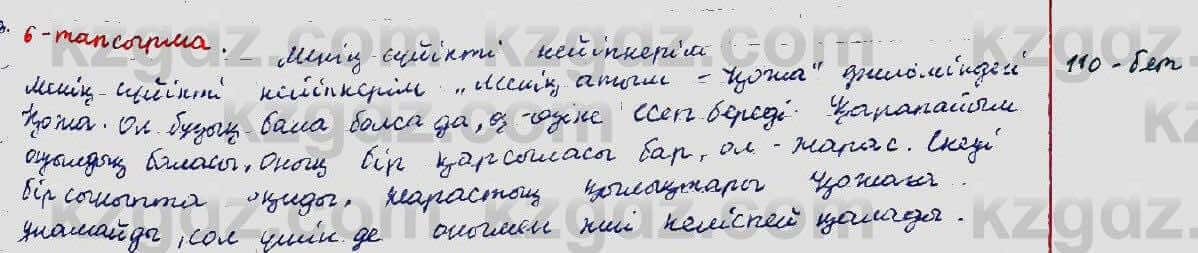 6-тапсырма.
Менің сүйікті кейіпкерім
Менің сүйікті кейіпкерім „Менің атым - Қожа" фильміндегі 110-бет
Қожа. Ол бұзық бала болса да, өз-өзіне есеп береді. Қарапайым
ауылдың баласы, оның бір қарсыласы бар, ол - Жарас. Екеуі
бір сыныпта оқиды. Жарастың қылықтары Қожаға
ұнамайды, сол үшін де онымен жиі келіспей қалады.
kzgdz.com